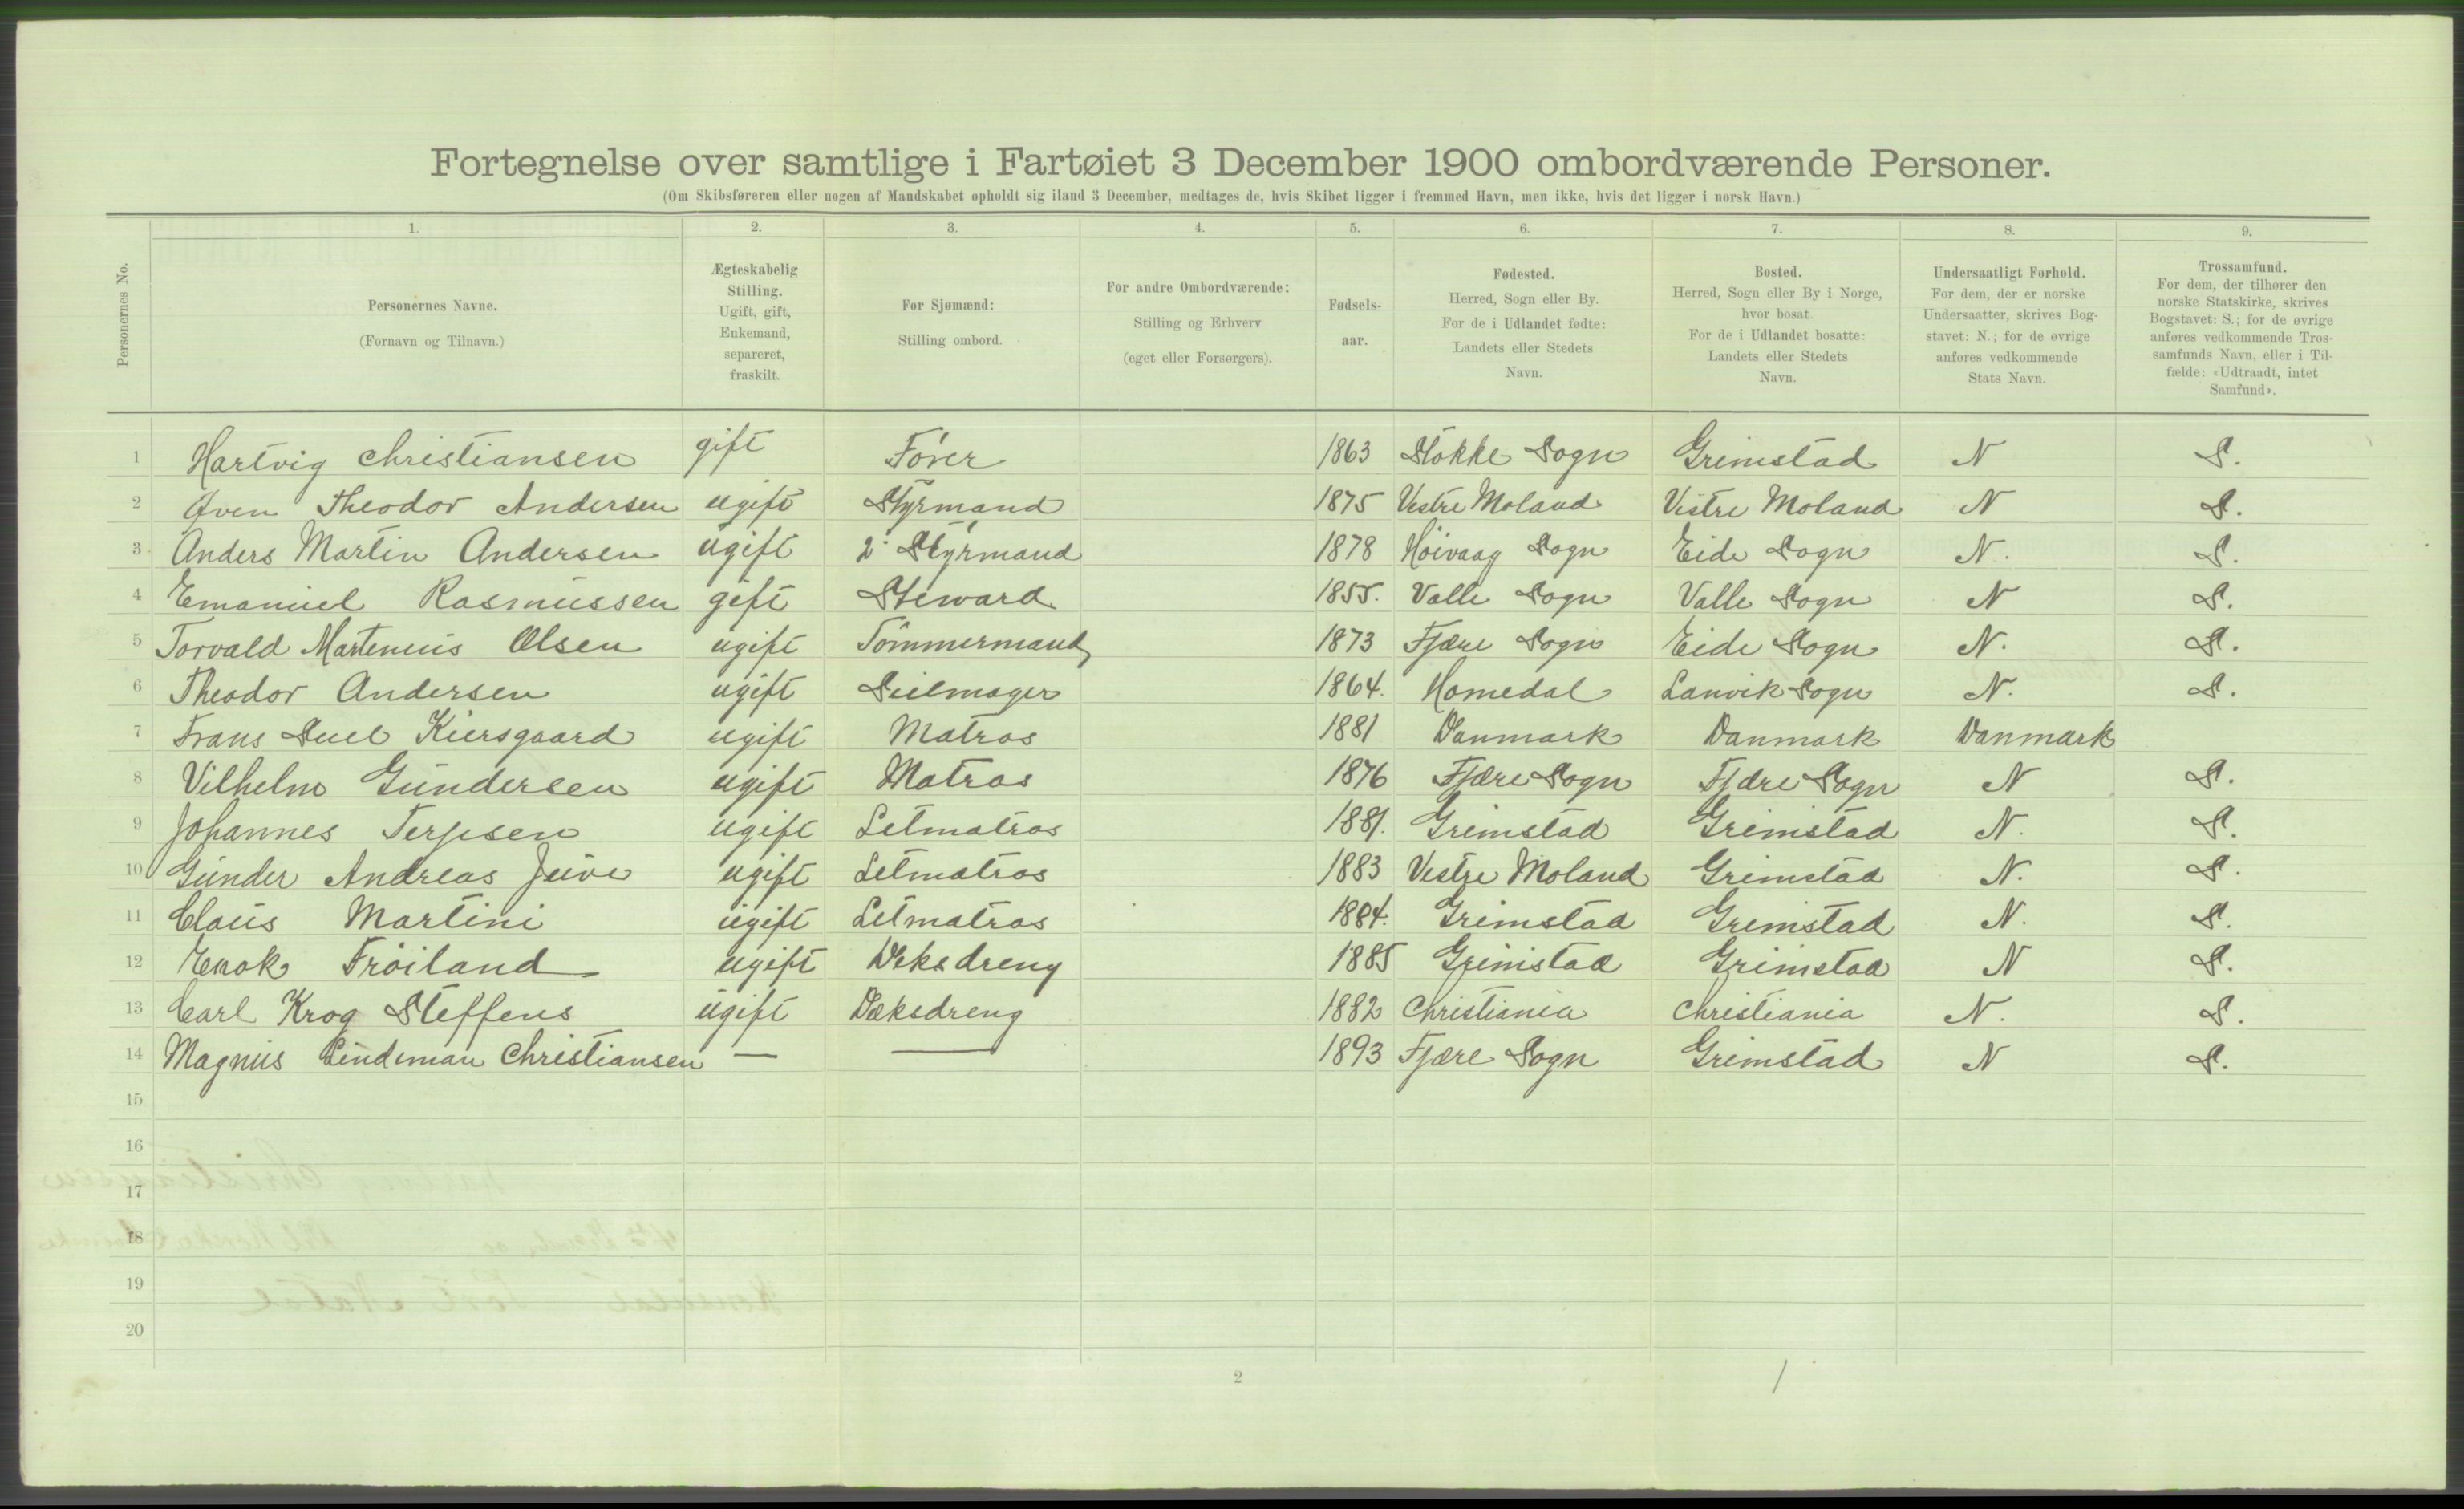 Fortegnelse over samtlige i Fartøiet 3 December 1900 ombordværende Personer.
(Om Skibsføreren eller nogen af Mandskabet opholdt sig iland 3 December, medtages de, hvis Skibet ligger i fremmed Havn, men ikke, hvis det ligger i norsk Havn.)
Personernes No.
1. 2. 3. 4. 5. 6. 7. 8. 9.
Personernes Navne.
(Fornavn og Tilnavn.)
Ægteskabelig
Stilling.
Ugift, gift,
Enkemand,
separeret,
fraskilt.
For Sjømænd:
Stilling ombord.
For andre Ombordværende:
Stilling og Erhverv
(eget eller Forsørgers).
Fødsels-
aar.
Fødested.
Herred, Sogn eller By.
For de i Udlandet fødte:
Landets eller Stedets
Navn.
Bosted.
Herred, Sogn eller By i Norge,
hvor bosat.
For de i Udlandet bosatte:
Landets eller Stedets
Navn.
Undersaatligt Forhold.
For dem, der er norske
Undersaatter, skrives Bog-
stavet: N.; for de øvrige
anføres vedkommende
Stats Navn.
Trossamfund.
For dem, der tilhører den
norske Statskirke, skrives
Bogstavet: S.; for de øvrige
anføres vedkommende Tros-
samfunds Navn, eller i Til-
fælde: «Udtraadt, intet
Samfund».
1 Hartvig Christiansen gift Fører 1863 Stokke Sogn Grimstad N S.
2 Theodor Andersen ugift Styrmand 1875 Vestre Moland Vestre Moland N S.
3 Anders Martin Andersen ugift 2. Styrmand 1878 Höivaag Sogn Eide Sogn N. S.
4 Emanuel Rasmussen gift Steward 1855. Valle Sogn Valle Sogn N S.
5 Torvald Martenius Olsen ugift Tömmermand 1873 Fjære Sogn Eide Sogn N. S.
6 Theodor Andersen ugift Seilmager 1864. Homedal Lanvik Sogn N. S.
7 Frans Kiersgaard ugift Matros 1881 Danmark Danmark Danmark
8 Vilhelm Gundersen ugift Matros 1876 Fjære Sogn Fjære Sogn N S.
9 Johannes Terjesen ugift Letmatros 1881. Grimstad Grimstad N. S.
10 Gunder Andreas Juve ugift Letmatros 1883 Vestre Moland Grimstad N. S.
11 Claus Martini ugift Letmatros 1884. Grimstad Grimstad N. S.
12 Enok Fröiland ugift Deksdreng 1885 Grimstad Grimstad N S.
13 Carl Krog Steffens ugift Dæksdreng 1882 Christiania Christiania N. S.
14 Magnus Lindeman Christiansen — — 1893 Fjære Sogn Grimstad N S.
15
16
17
18
19
20
2